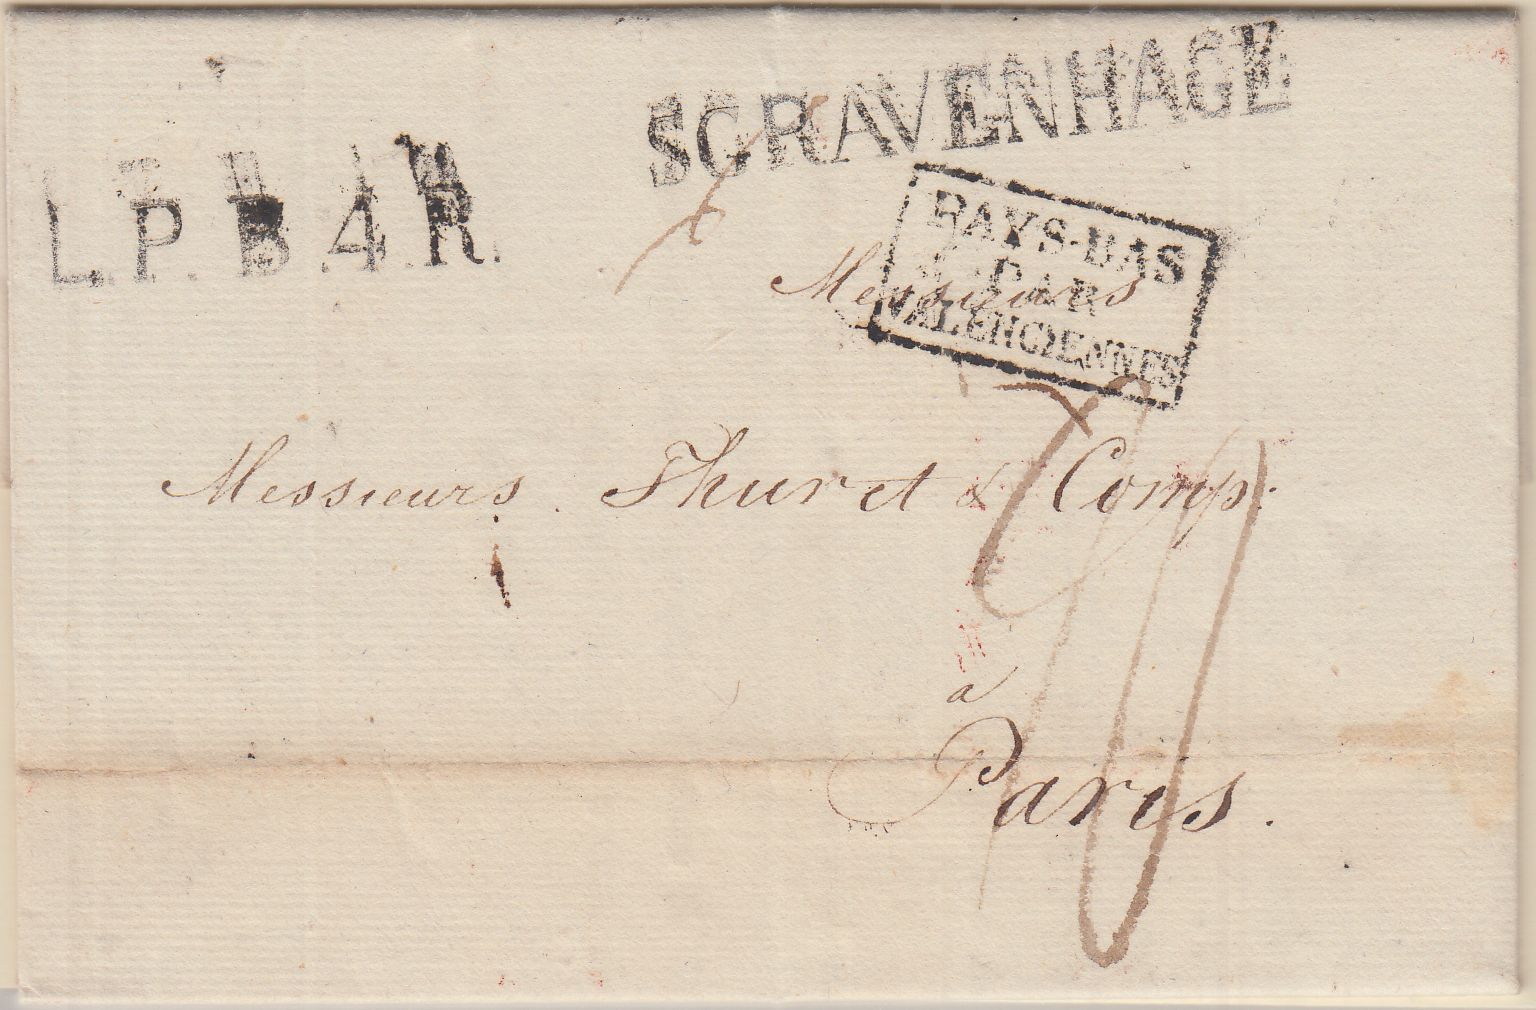 SGRAVENHAGE
L.P.B.4.R.
PAYS-BAS
PAR
VALENCIENNES
Messieurs
Messieurs Thuret & Comp:
a
Paris.